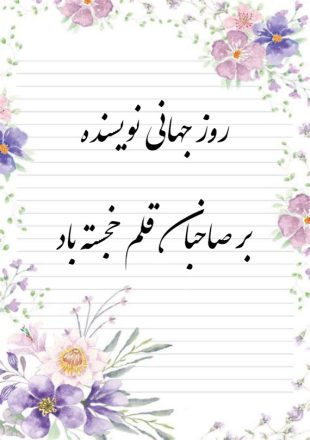 روز جهانی نویسنده
بر صاحبان قلم خجسته باد